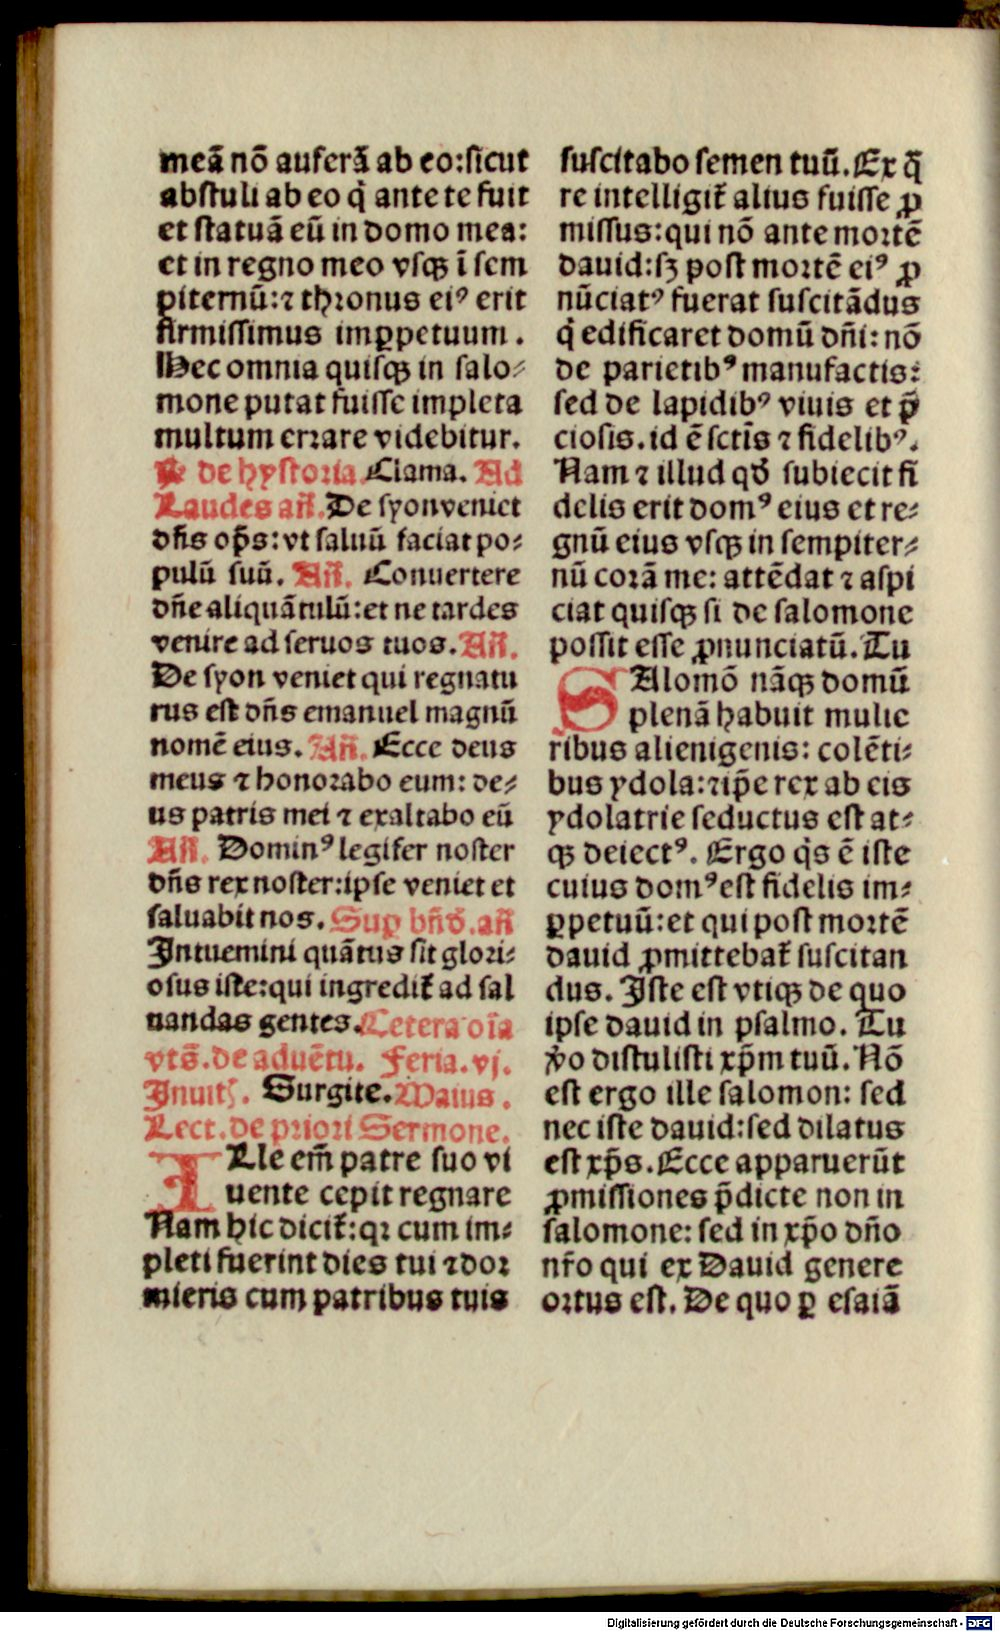 meā nō auferā ab eo:sicut
abstuli ab eo q̇ ante te fuit
et statuā eū in domo mea:
et in regno meo vsqꝫ ī sem
piternū:⁊ thronus eiꝰ erit
firmissimus imꝑpetuum.
Hec omnia quisqꝫ in salo⸗
mone putat fuisse impleta
multum errare videbitur.
℟ de hystoria. Clama. Ad
Laudes añ. De syon veniet
dn̄s op̄s: vt saluū faciat po⸗
pulū suū. Añ. Conuertere
dn̄e aliquātulū:et ne tardes
venire ad seruos tuos. Añ.
De syon veniet qui regnatu
rus est dn̄s emanuel magnū
nomē eius. Añ. Ecce deus
meus ⁊ honorabo eum: de⸗
us patris mei ⁊ exaltabo eū
Añ. Dominꝰ legifer noster
dn̄s rex noster:ipse veniet et
saluabit nos. Suꝑ bn̄d̄. añ
Intuemini quātus sit glori⸗
osus iste:qui ingredit᷑ ad sal
uandas gentes. Cetera oīa
vts̄. de aduētu. Feria. vj.
Inuit. Surgite. Maius.
Lect. de priori Sermone.
ILle em̄ patre suo vi
uente cepit regnare
Nam hic dicit᷑: qꝛ cum im⸗
pleti fuerint dies tui ⁊ dor
mieris cum patribus tuis
suscitabo semen tuū. Ex q̄
re intelligit᷑ alius fuisse ꝓ
missus: qui nō ante mortē
dauid:sꝫ post mortē eiꝰ ꝓ
nūciatꝰ fuerat suscitādus
q̇ edificaret domū dn̄i: nō
de parietibꝰ manufactis:
sed de lapidibꝰ viuis et p̄
ciosis. id ē sctīs ⁊ fidelibꝰ.
Nam ⁊ illud qd̄ subiecit fi
delis erit domꝰ eius et re⸗
gnū eius vsqꝫ in sempiter⸗
nū corā me: attēdat ⁊ aspi
ciat quisqꝫ si de salomone
possit esse ꝓnunciatū. Tu
SAlomō nāqꝫ domū
plenā habuit mulie
ribus alienigenis: colēti⸗
bus ydola:⁊ ip̄e rex ab eis
ydolatrie seductus est at⸗
qꝫ deiectꝰ. Ergo q̇s ē iste
cuius domꝰ est fidelis im⸗
ꝑpetuū: et qui post mortē
dauid ꝓmittebat᷑ suscitan
dus. Iste est vtiqꝫ de quo
ipse dauid in psalmo. Tu
v̊o distulisti xp̄m tuū. Nō
est ergo ille salomon: sed
nec iste dauid:sed dilatus
est xp̄s. Ecce apparuerūt
ꝓmissiones p̄dicte non in
salomone: sed in xp̄o dn̄o
nr̄o qui ex Dauid genere
ortus est. De quo ꝑ esaiā
Digitalisierung gefördert durch die Deutsche Forschungsgemeinschaft - DFG